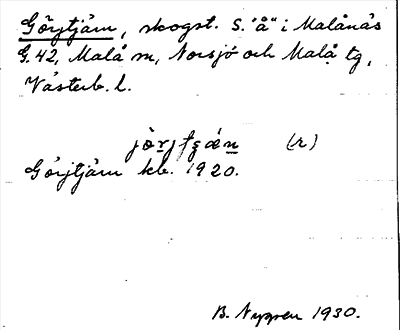 Görjtjärn, skogst. S. "å" i Malånäs
G. 42, Malå sn, Norsjö och Malå tg,
Västerb. l.
Görjtjärn kb. 1920.
B. Nygren 1930.